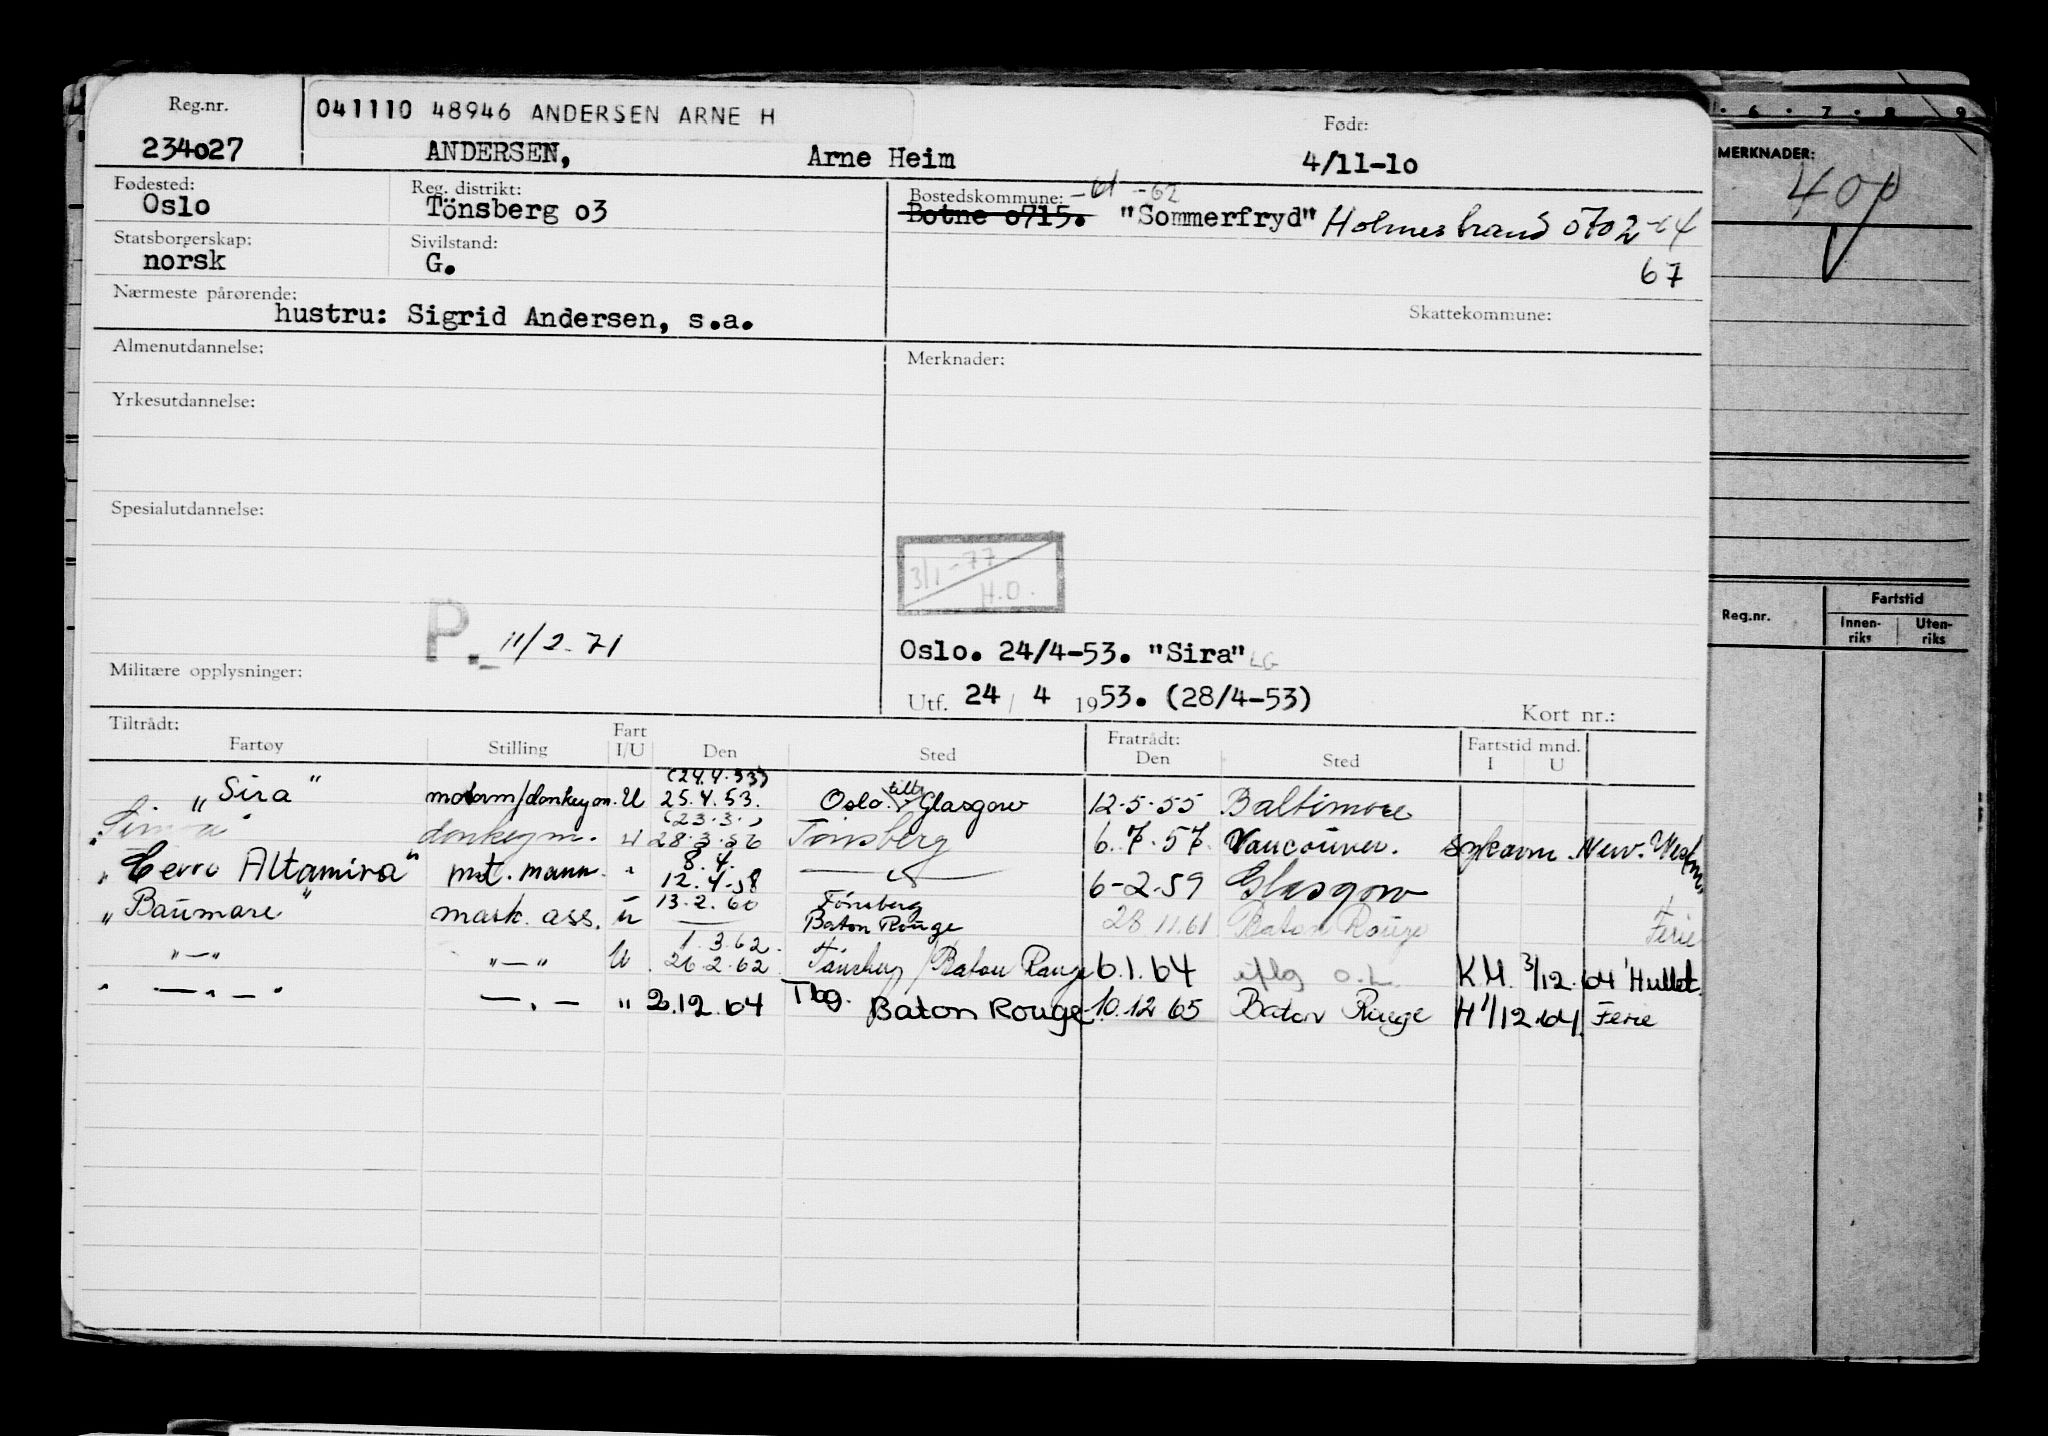 Reg.nr.
041110 48946 ANDERSEN ARNE H
Født:
234o27 ANDERSEN, Arne Heim 4/11-1o
Fødested: Reg. distrikt: Bostedskommune: -61 -62
Oslo Tönsberg o3 Botne o715. "Sommerfryd" Holmestrand 0702-64
67
Statsborgerskap: Sivilstand:
norsk G.
Nærmeste pårørende:
hustru: Sigrid Andersen, s.a.
Skattekommune:
Almenutdannelse: Merknader:
Yrkesutdannelse:
Spesialutdannelse:
3/1-77
H.O.
P. 11/2-71
Oslo. 24/4-53. "Sira" LG
Militære opplysninger:
Utf. 24 / 4 1953. (28/4-53)
Kort nr.:
Tiltrådt: Fart Fratrådt: Fartstid mnd.
Fartøy Stilling I/U Den Sted Den Sted I U
(24.4.53)
"Sira" motorm/donkeym. U 25.4.53. Oslo tilb Glasgow 12-5-55 Baltimore
(23.3.)
donkeym. U 28.3.56 Tönsberg 6.7.57. Vancouver. New.
8.4.
"Cerro Altamira" mot. mann. " 12.4.58 6-2-59 Glasgow
13.2.60 Tönsberg
"Baumare" mask. ass. U Baton Rouge 28.11.61 Baton Rouge Ferie
1.3.62.
"—" "—" U 26.2.62 Tönsberg / Baton Rouge 6.1.64 iflg o.L. KM 3/12.64 'Hullet.
" — " — " — " — " 2.12.64 Tbg. Baton Rouge 10.12.65 Baton Rouge H 1/12.64. Ferie
6 7 8 9
MERKNADER:
40p
Reg.nr. Fartstid
Innen-riks Uten-riks